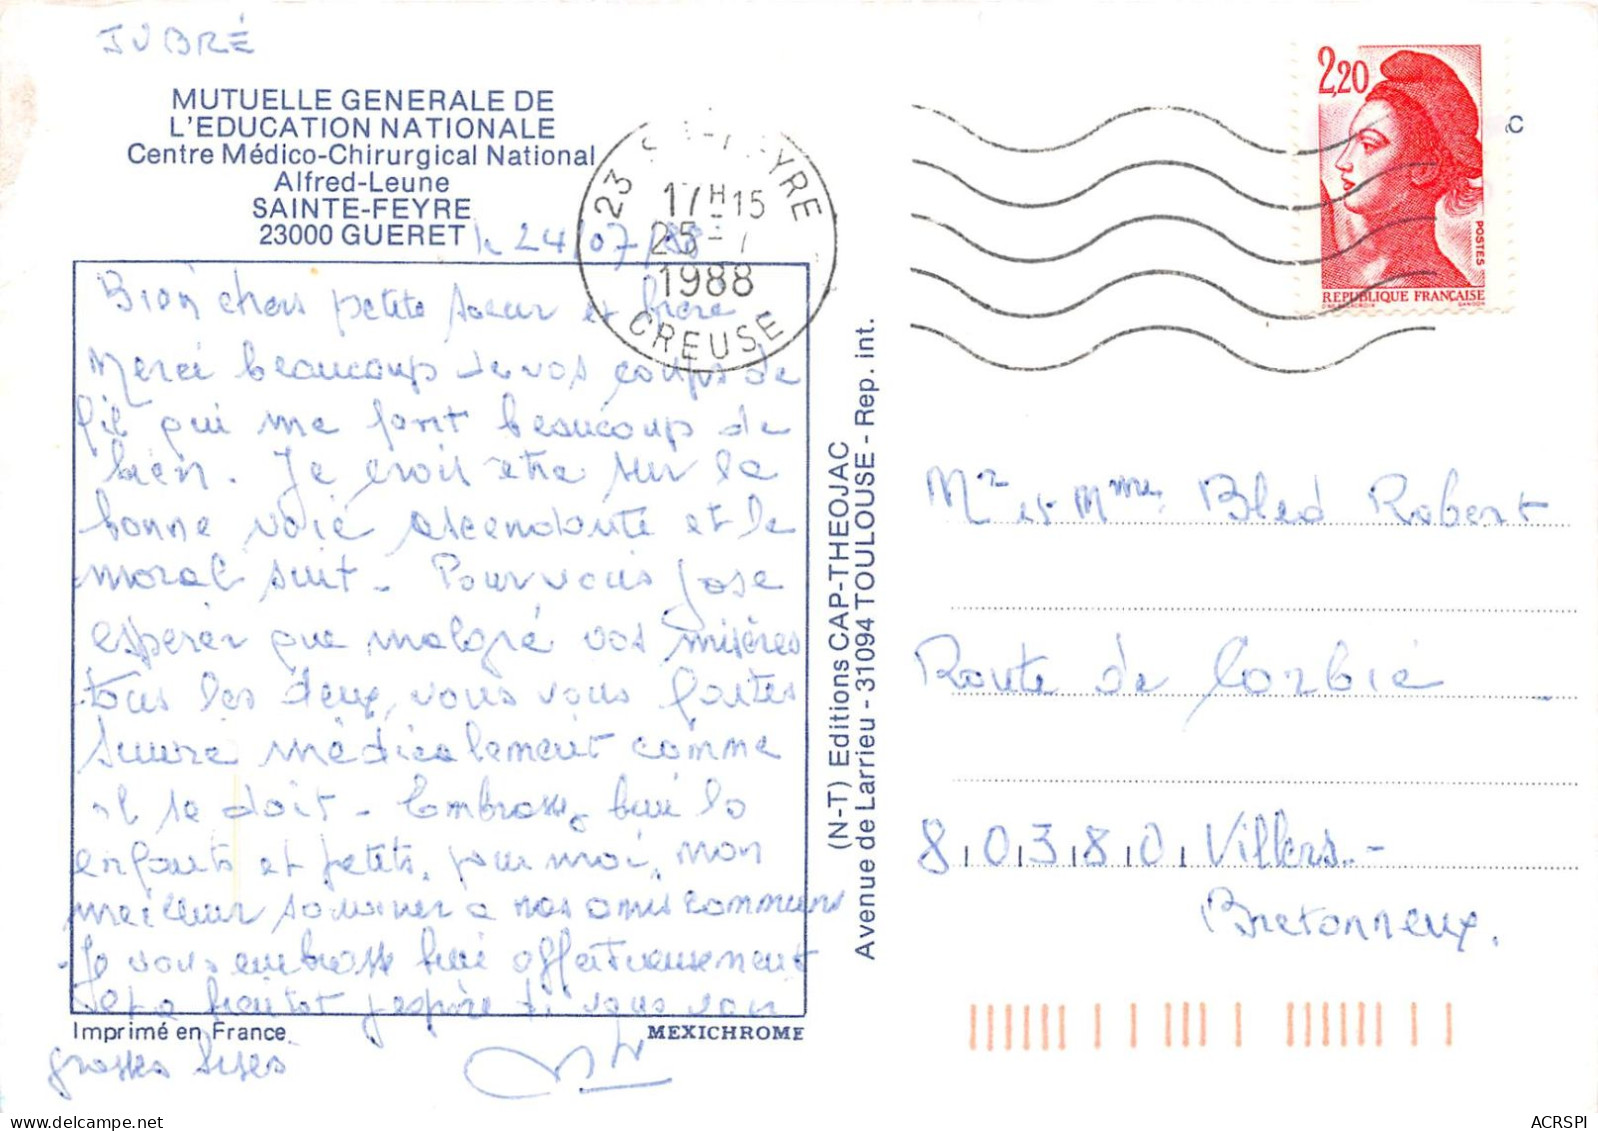 JUBRÉ
MUTUELLE GENERALE DE
L'EDUCATION NATIONALE
Centre Médico-Chirurgical National
Alfred-Leune
SAINTE-FEYRE
23000 GUERET
le 24/07/88
Bien chers petite soeur et frère
Merci beaucoup de vos coups de
fil qui me font beaucoup de
bien. Je crois être sur la
bonne voie ascendante et le
moral suit - Pour vous j'ose
espérer que malgré vos misères
tous les deux, vous vous faites
suivre médicalement comme
il se doit - Embrassez bien les
enfants et petits, pour moi, mon
meilleur souvenir a nos amis communs
Je vous embrasse bien affectueusement
et a bientot j'espère
grosses bises
Imprimé en France
MEXICHROME
(N-T) Editions CAP-THEOJAC
Avenue de Larrieu - 31094 TOULOUSE - Rep. int.
23 FEYRE
17H15
25-7
1988
CREUSE
2,20
POSTES
REPUBLIQUE FRANÇAISE
C
Mr et Mme Bled Robert
Route de Corbie
80380 Villers-
Bretonneux.
ACRSPI